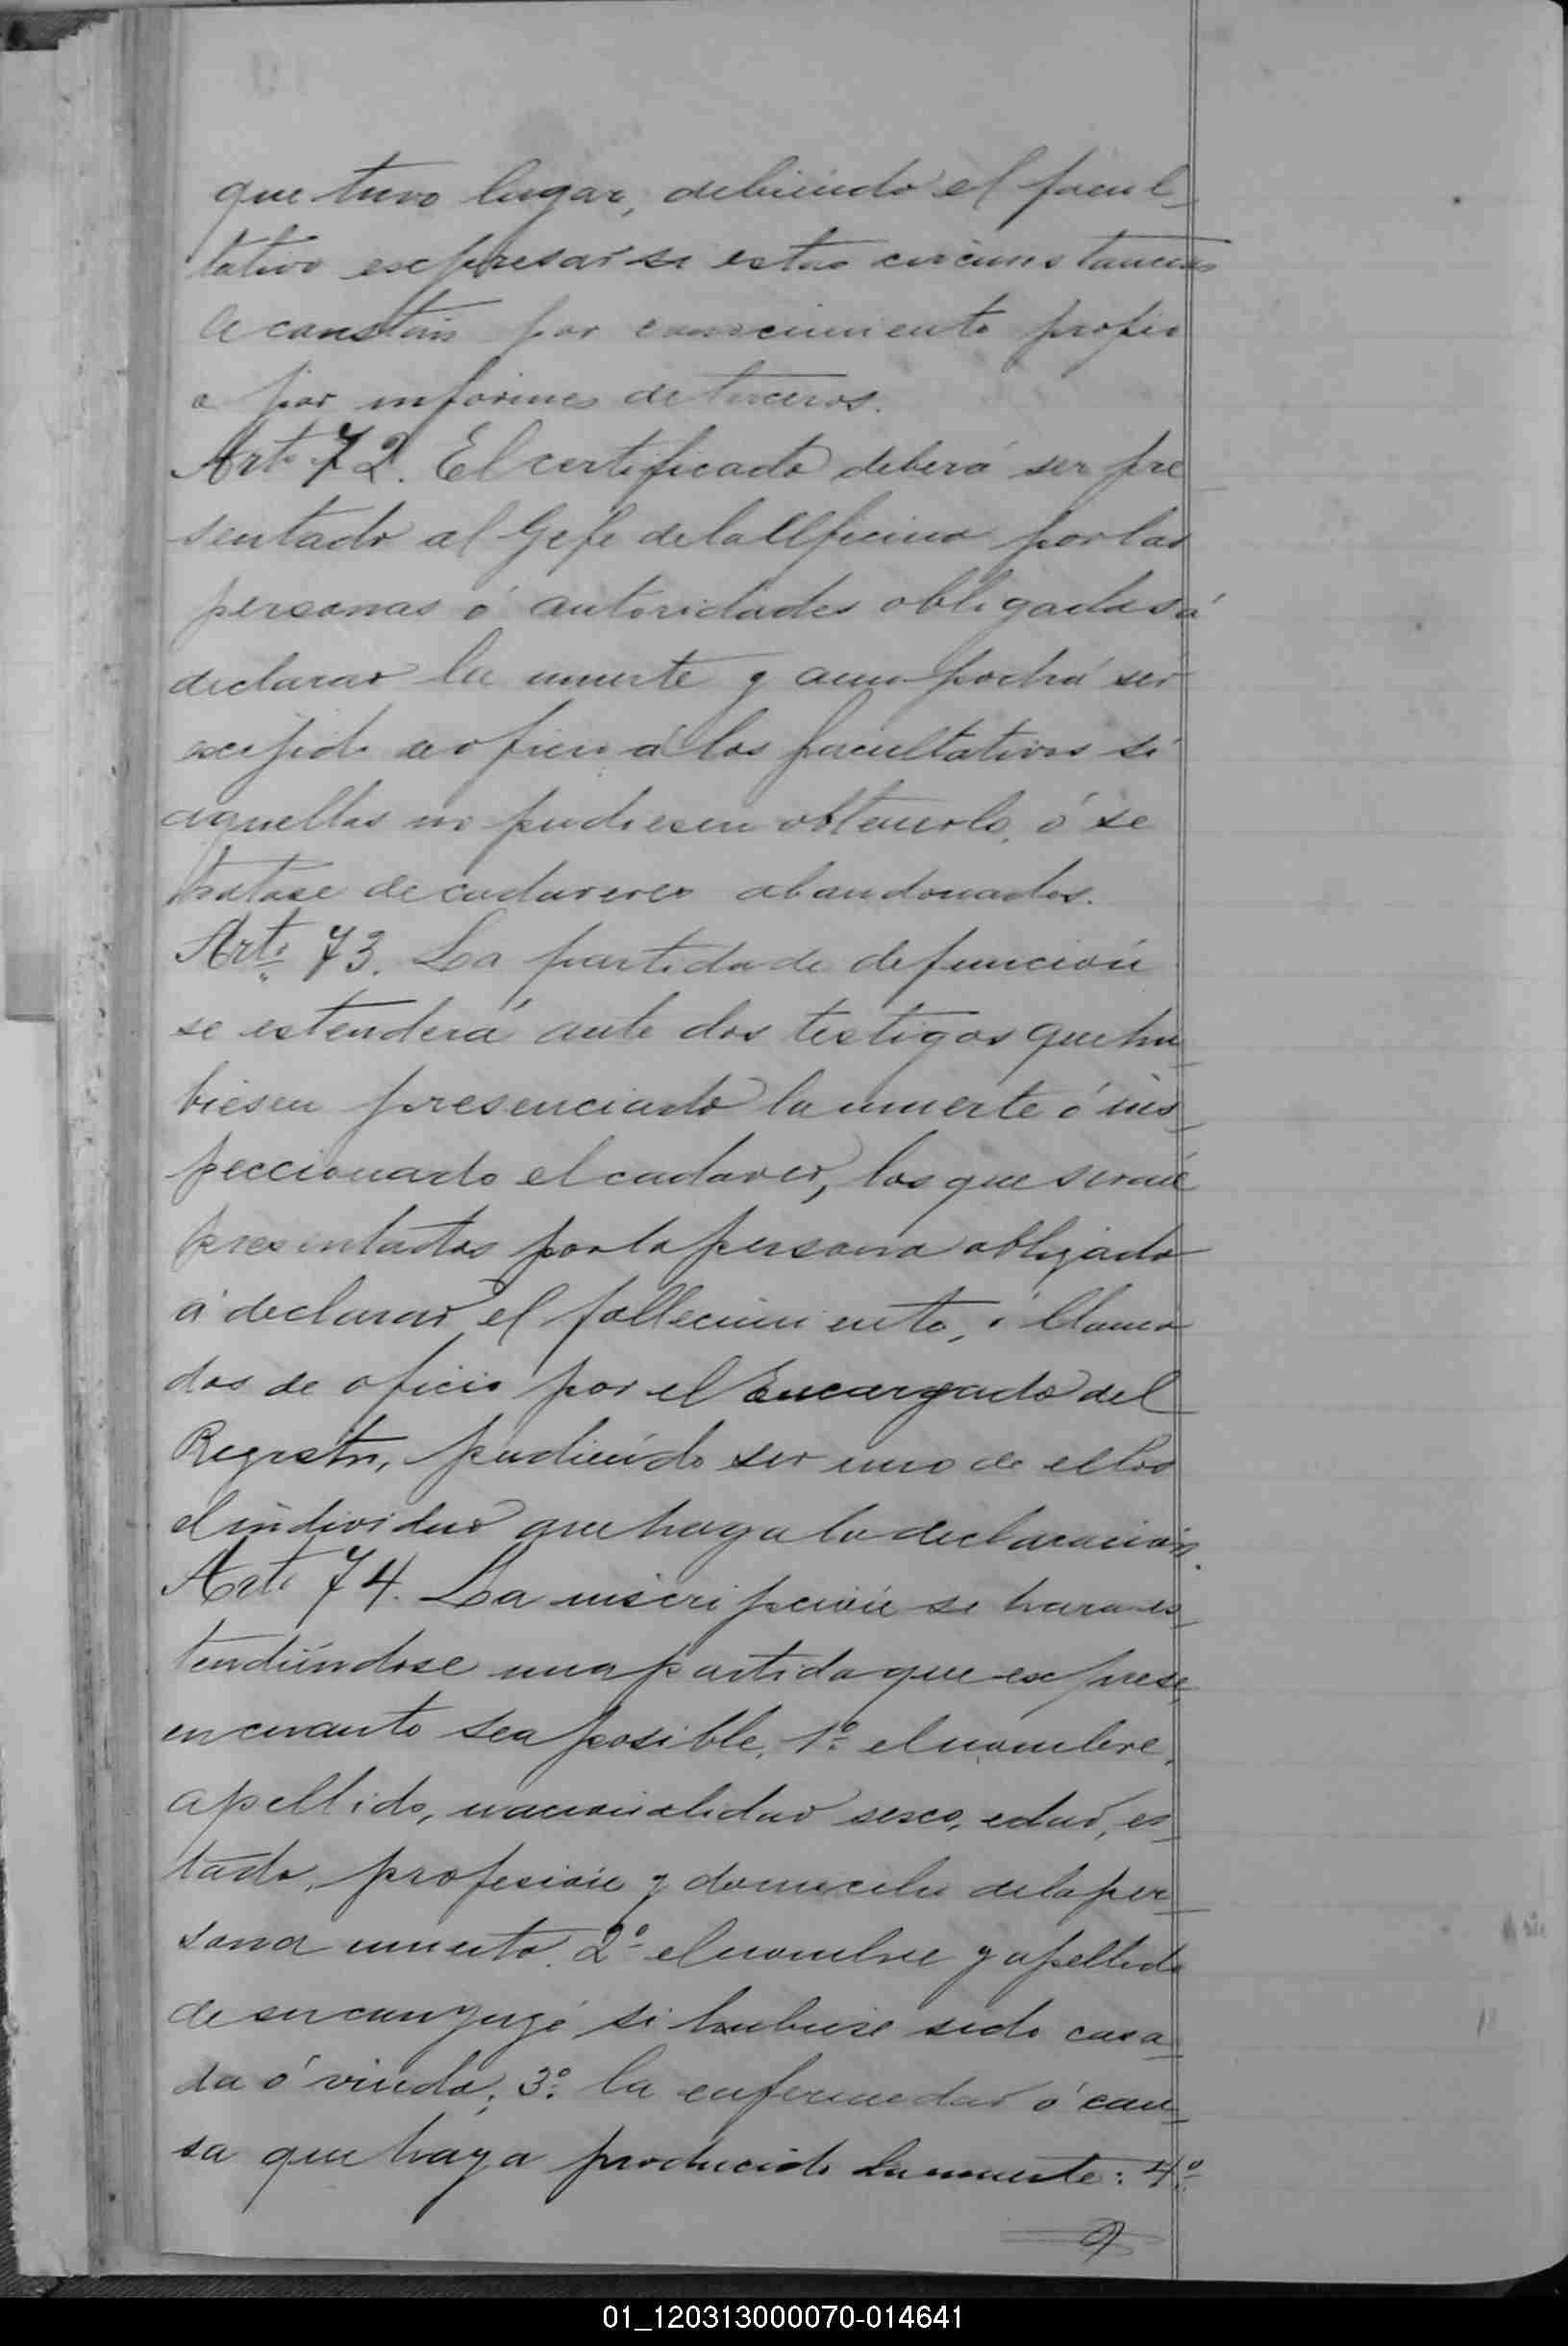 que tuvo lugar, debiendo el facul-
tativo expresar si estas circunstancias
le constan por conocimiento propio
o por informes de terceros.
Arto 72. El certificado deberá ser pre
sentado al Gefe de la Oficina por las
personas ó autoridades obligadas á
declarar la muerte y aun podrá ser
exijido de oficio á los facultativos si
aquellas no pudiesen obtenerlo, ó se
tratase de cadaveres abandonados.
Arto 73. La partida de defunción
se estenderá ante dos testigos que hu-
biesen presenciado la muerte ó ins-
peccionado el cadaver, los que serán
presentados por la persona obligada
á declarar el fallecimiento, ó llama
dos de oficio por el Encargado del
Registro, pudiendo ser uno de ellos
el individuo que haga la declaración.
Arto 74. La inscripción se hara es-
tendiéndose una partida que exprese
en cuanto sea posible, 1º el nombre,
apellido, nacionalidad sexo, edad, es-
tado, profesión y domicilio de la per-
sona muerta. 2º el nombre y apellido
de su conyuge si hubiese sido casa-
da ó viuda; 3º la enfermedad ó cau-
sa que haya producido la muerte: 4º
01_120313000070-014641